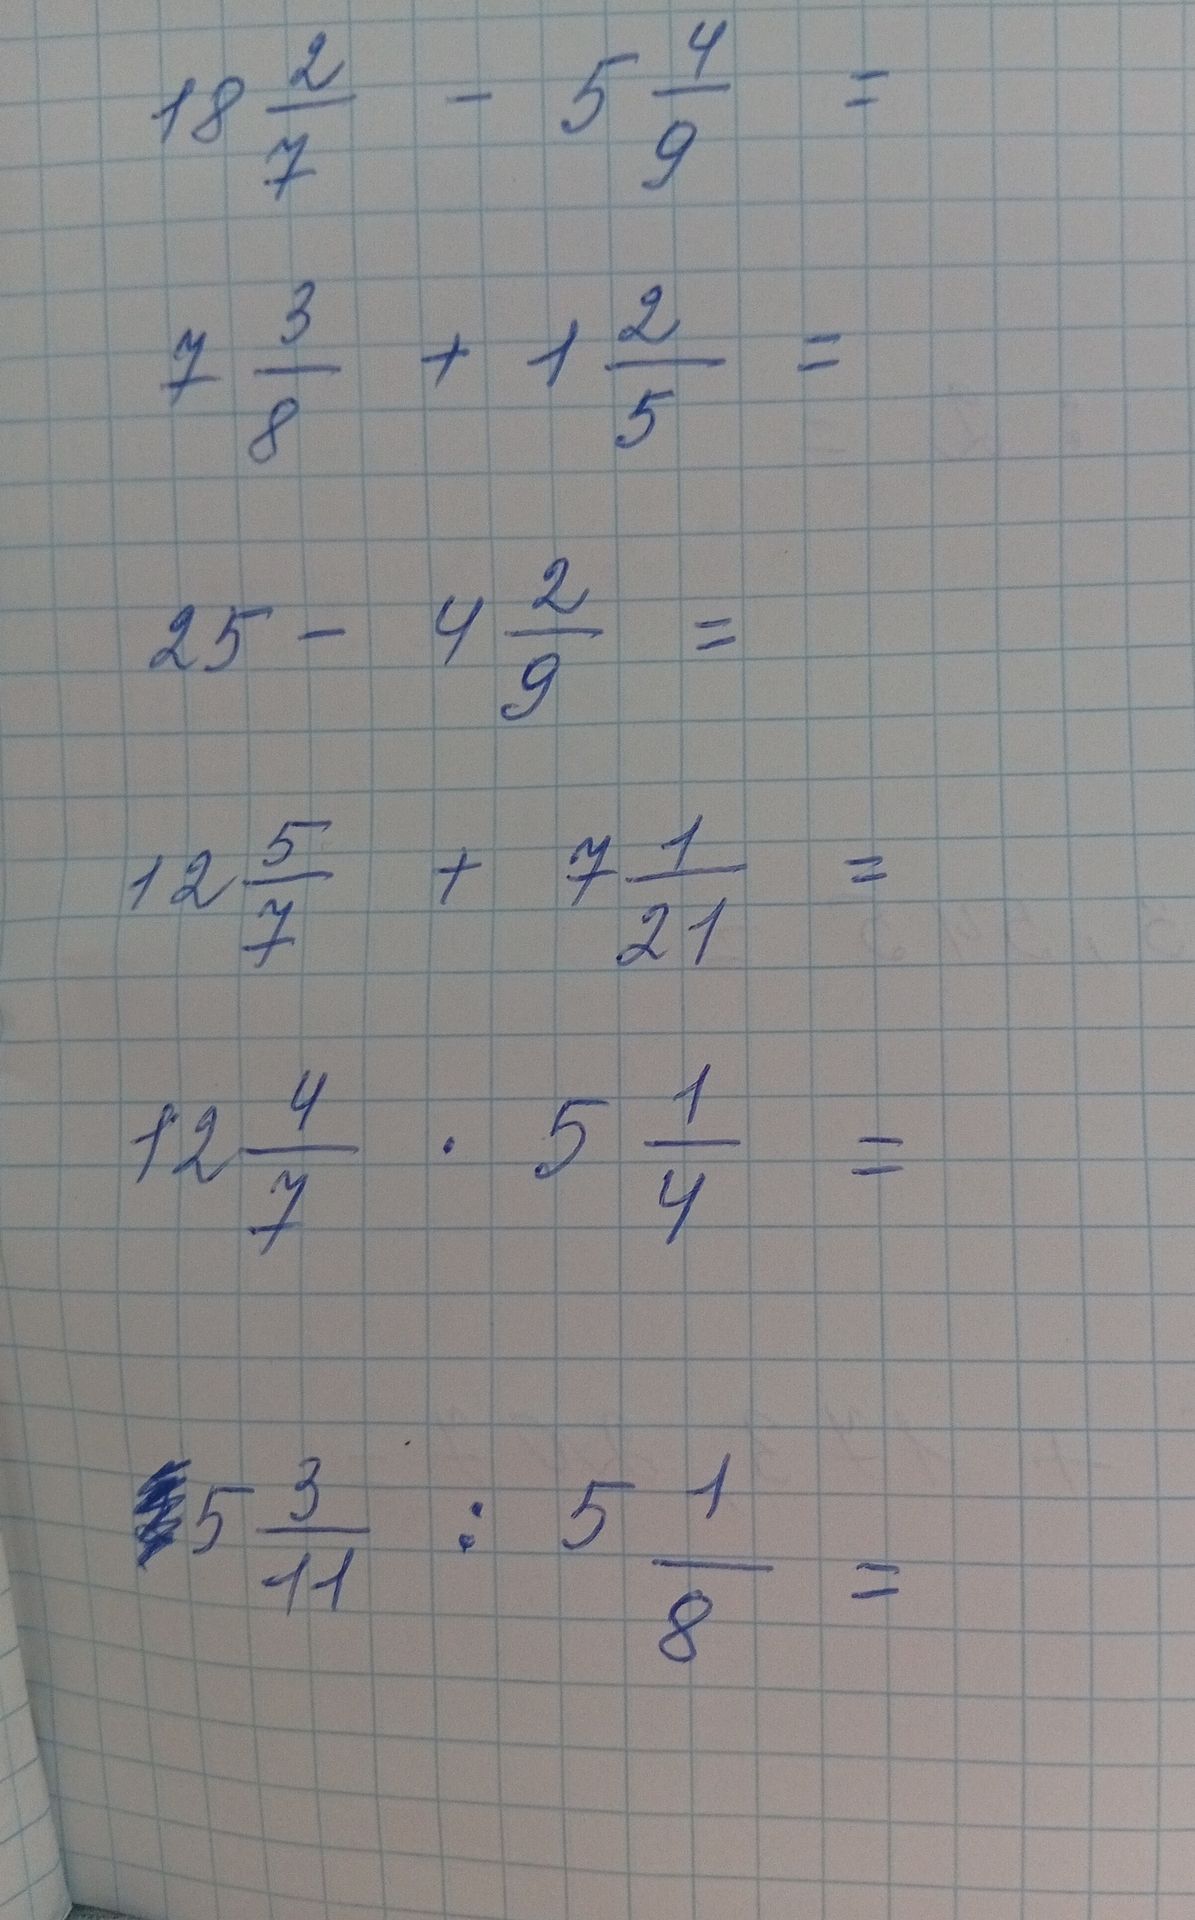 18 2/7 - 5 4/9 =
7 3/8 + 1 2/5 =
25 - 4 2/9 =
12 5/7 + 7 1/21 =
12 4/7 · 5 1/4 =
5 3/11 : 5 1/8 =